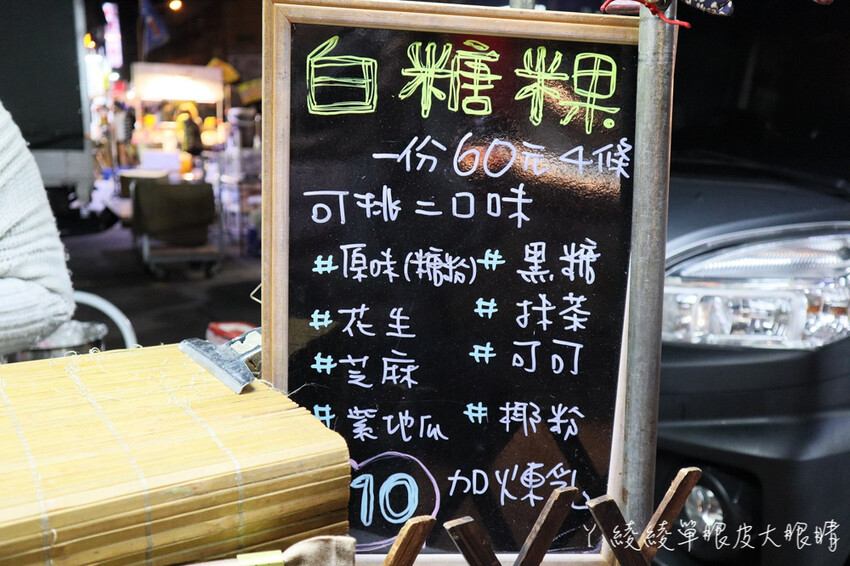 白糖粿.
一份60元4條
可挑二口味
#原味(糖粉) #黑糖
#花生 #抹茶
#芝麻 #可可
#紫地瓜 #椰粉
10 加煉乳
ㄚ綾綾單眼皮大眼睛